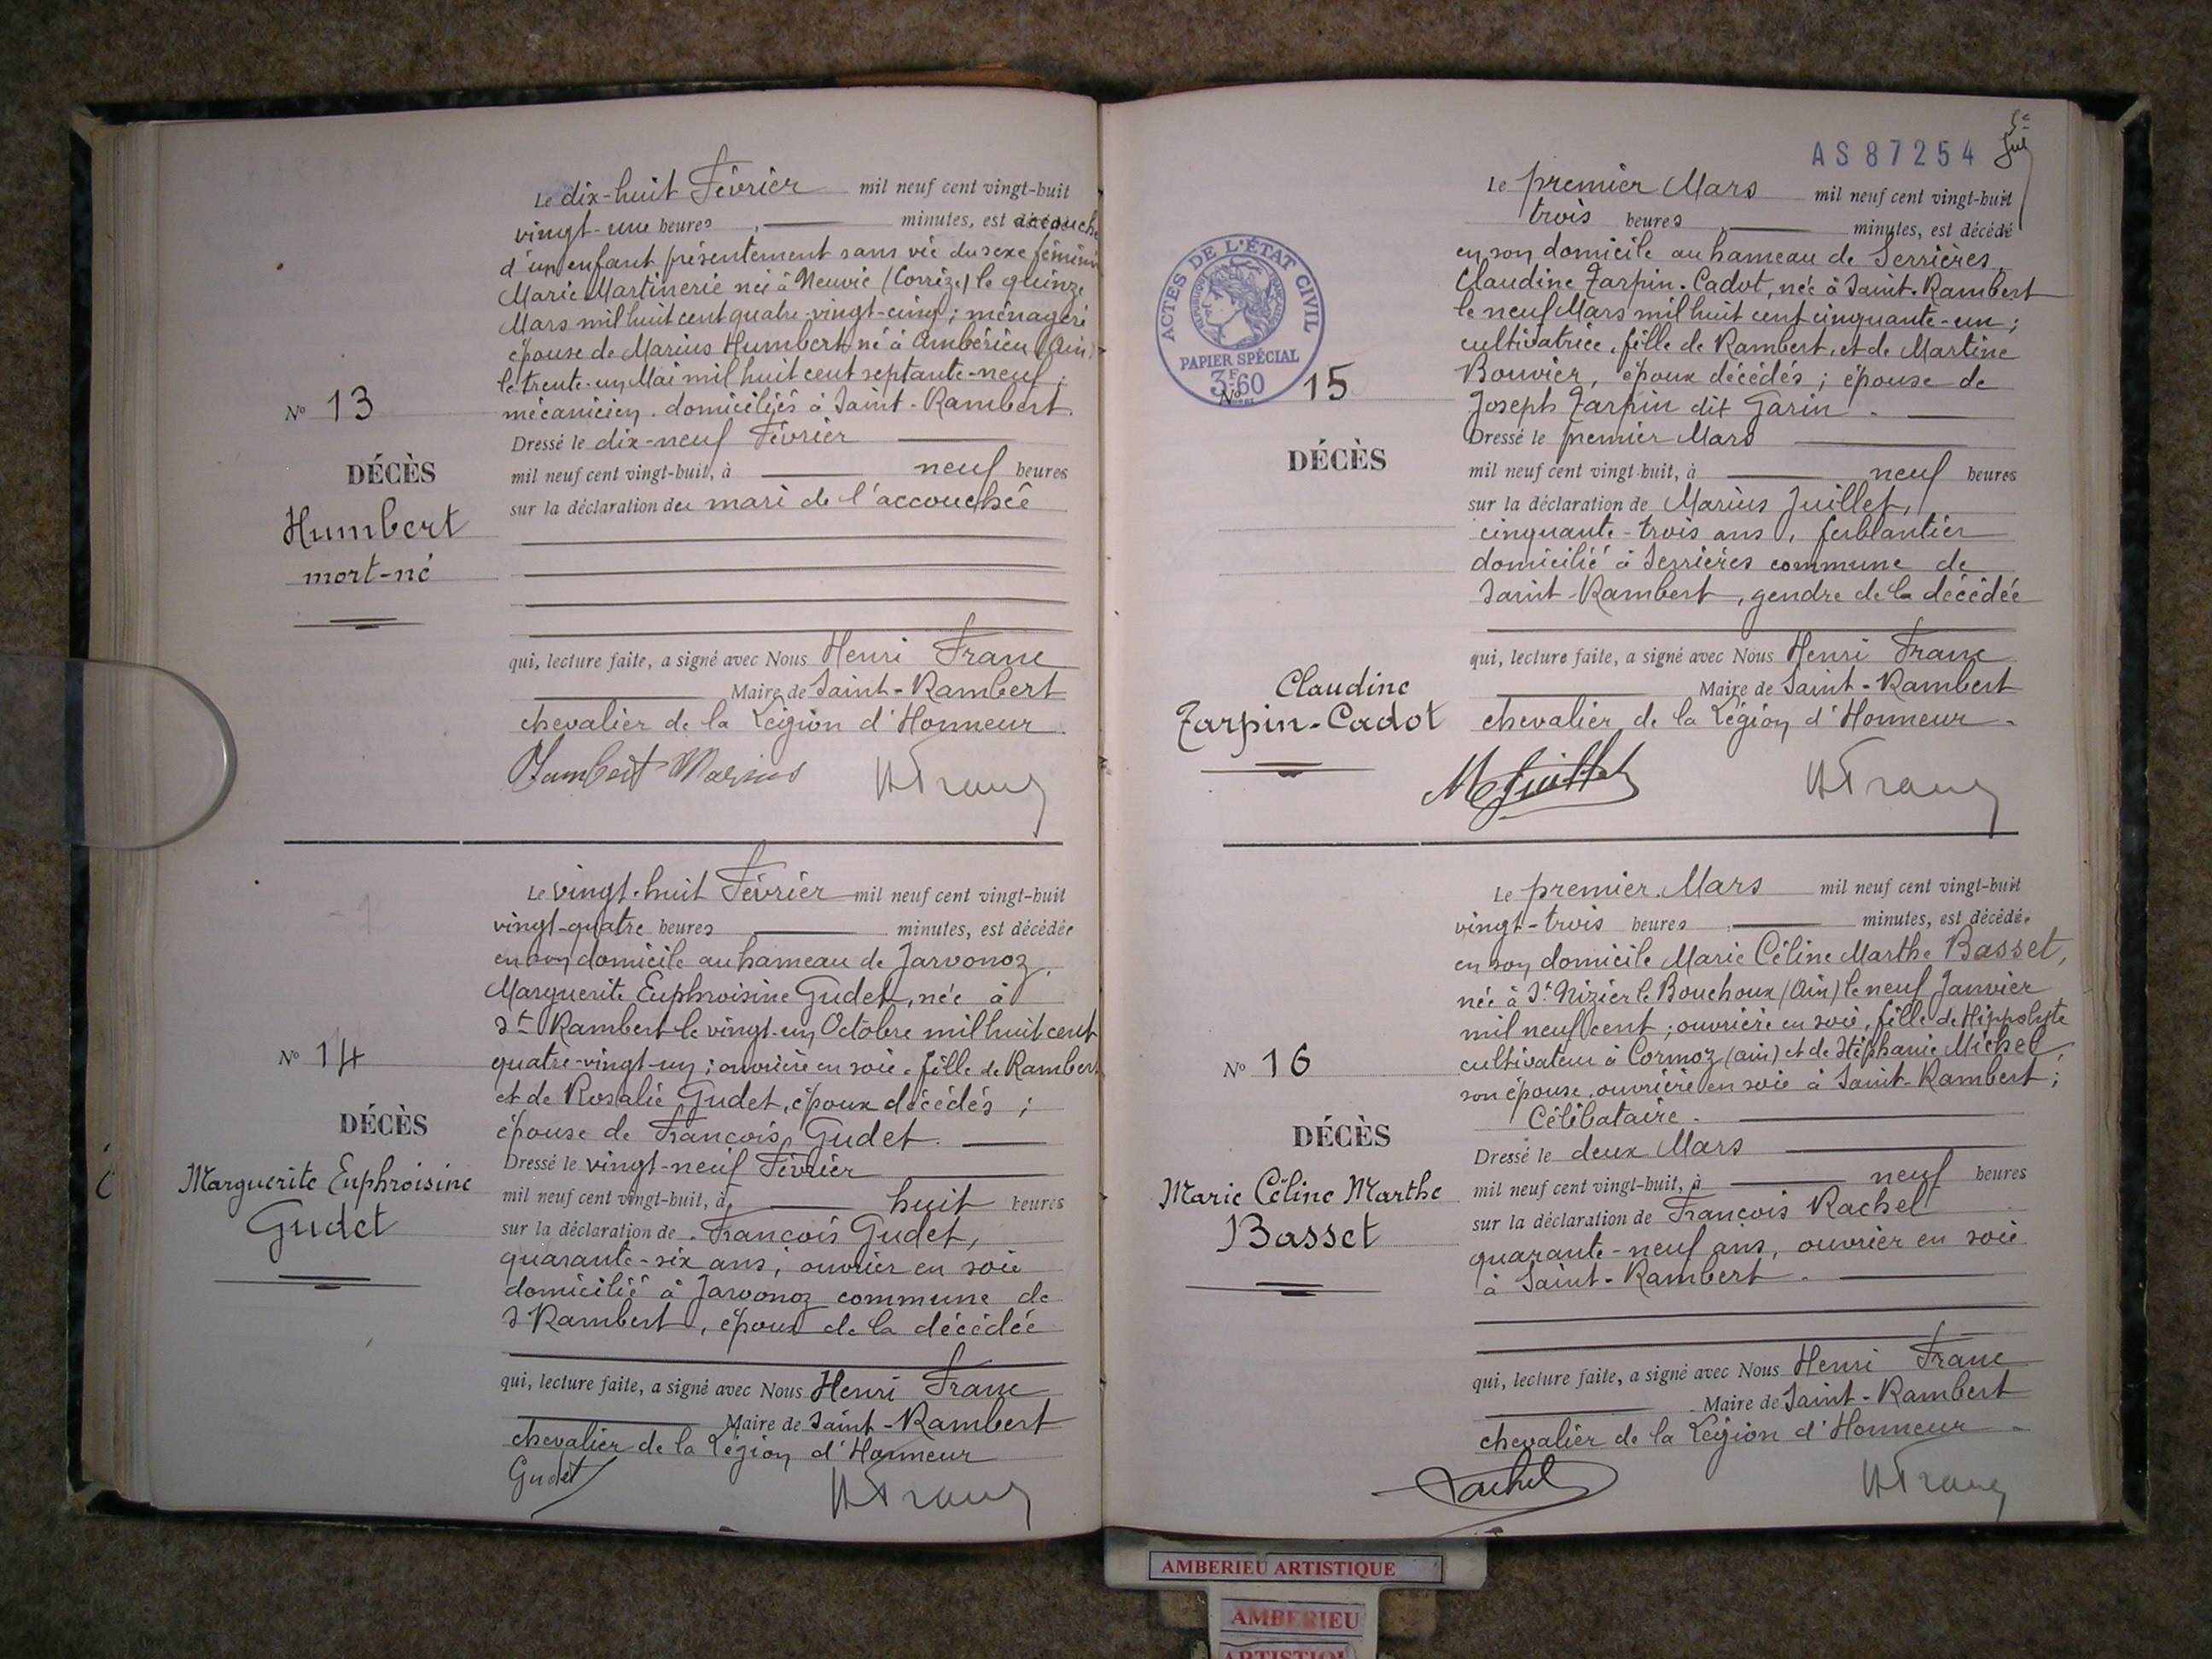 Le dix-huit Février mil neuf cent vingt-huit
vingt-une heures, minutes, est accouchée
d'un enfant présentement sans vie du sexe féminin
Marie Martinerie née à Neuvic (Corrèze) le quinze
Mars mil huit cent quatre-vingt-cinq; ménagère
épouse de Marius Humbert né à Ambérieu (Ain)
le trente-un Mai mil huit cent septante-neuf;
mécanicien. domiciliés à Saint-Rambert.
Nº 13
Dressé le dix-neuf Février
DÉCÈS
mil neuf cent vingt-huit, à neuf heures
Humbert
mort-né
sur la déclaration du mari de l'accouchée
qui, lecture faite, a signé avec Nous Henri Franc
Maire de Saint-Rambert
chevalier de la Légion d'Honneur.
Humbert Marius HFranc
Le vingt-huit Février mil neuf cent vingt-huit
vingt-quatre heures minutes, est décédée
en son domicile au hameau de Jarvonoz,
Marguerite Euphroisine Gudet, née à
St Rambert le vingt-un Octobre mil huit cent
quatre-vingt-un; ouvrière en soie. fille de Rambert
et de Rosalie Gudet, époux décédés;
épouse de François Gudet.
Nº 14
DÉCÈS
Marguerite Euphroisine
Gudet
Dressé le vingt-neuf Février
mil neuf cent vingt-huit, à huit heures
sur la déclaration de François Gudet,
quarante-six ans, ouvrier en soie
domicilié à Jarvonoz commune de
S Rambert, époux de la décédée
qui, lecture faite, a signé avec Nous Henri Franc
Maire de Saint-Rambert
chevalier de la Légion d'Honneur
Gudet HFranc
AS87254
5e
ACTES DE L'ÉTAT CIVIL
RÉPUBLIQUE FRANÇAISE
PAPIER SPÉCIAL
3F60
Le premier Mars mil neuf cent vingt-huit
trois heures, minutes, est décédé
en son domicile au hameau de Serrières
Claudine Tarpin-Cadot, née à Saint-Rambert
le neuf Mars mil huit cent cinquante-un;
cultivatrice, fille de Rambert, et de Martine
Bouvier, époux décédés; épouse de
Joseph Tarpin dit Garin.
Nº 15
DÉCÈS
Claudine
Tarpin-Cadot
Dressé le premier Mars
mil neuf cent vingt-huit, à neuf heures
sur la déclaration de Marius Juillet,
cinquante-trois ans, ferblantier
domicilié à Serrières commune de
Saint-Rambert, gendre de la décédée
qui, lecture faite, a signé avec Nous Henri Franc
Maire de Saint-Rambert
chevalier de la Légion d'Honneur.
MJuillet HFranc
Le premier Mars mil neuf cent vingt-huit
vingt-trois heures, minutes, est décédée
en son domicile Marie Céline Marthe Basset,
née à St Nizier le Bouchoux (Ain) le neuf Janvier
mil neuf cent; ouvrière en soie, fille de Hippolyte
cultivateur à Cormoz (ain) et de Stéphanie Michel,
son épouse, ouvrière en soie à Saint-Rambert;
Célibataire.
Nº 16
DÉCÈS
Marie Céline Marthe
Basset
Dressé le deux Mars
mil neuf cent vingt-huit, à neuf heures
sur la déclaration de François Rachel
quarante-neuf ans, ouvrier en soie
à Saint-Rambert.
qui, lecture faite, a signé avec Nous Henri Franc
Maire de Saint-Rambert
chevalier de la Légion d'Honneur
Rachel HFranc
AMBERIEU ARTISTIQUE
AMBERIEU
ARTISTIQUE